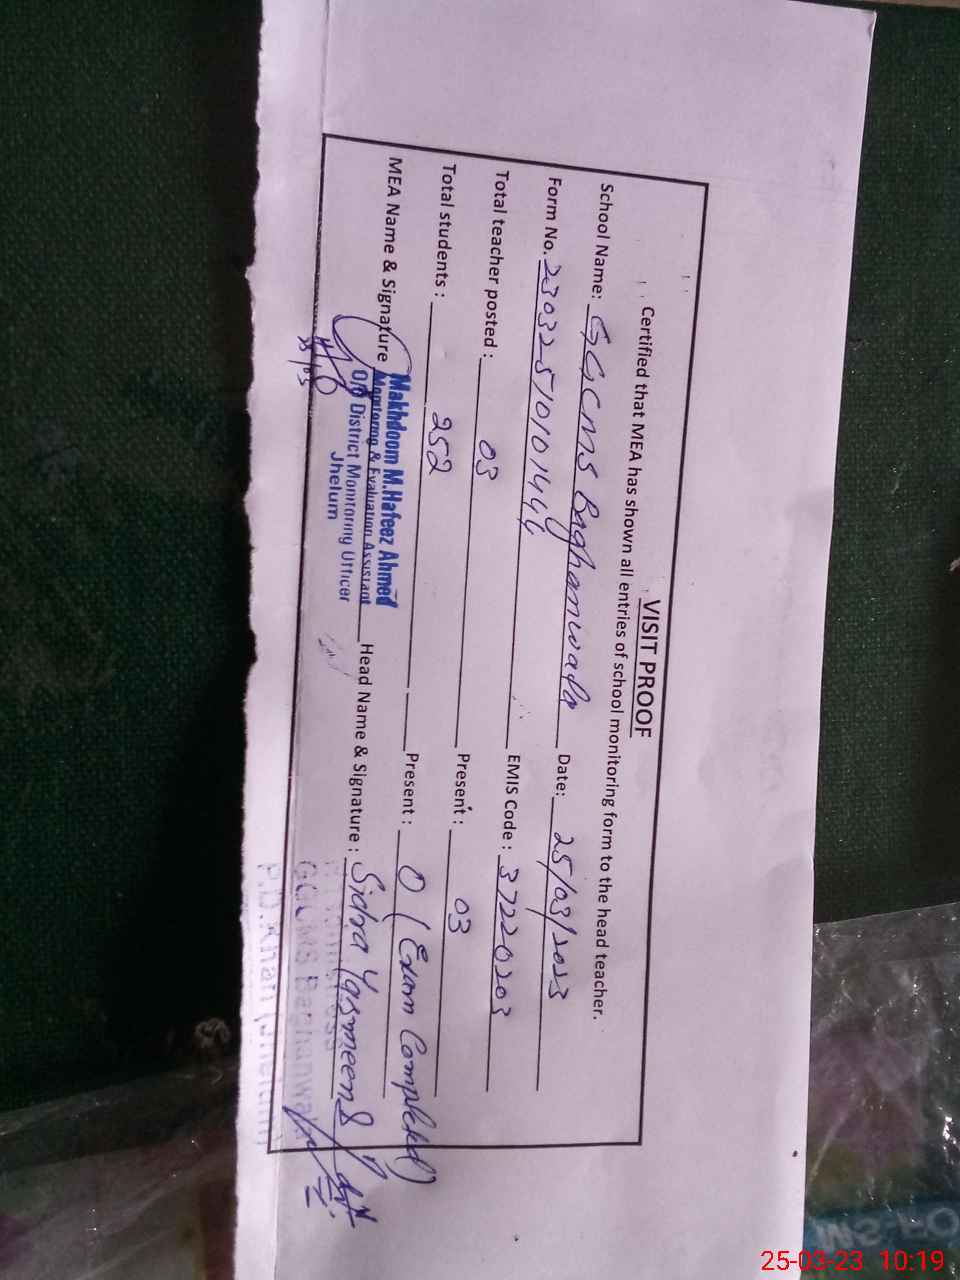 VISIT PROOF
Certified that MEA has shown all entries of school monitoring form to the head teacher.
School Name: GGCMS Baghanwala Date: 25/03/2023
Form No. 23032510101444 EMIS Code: 37220203
Total teacher posted: 03 Present: 03
Total students: 252 Present: 0 (Exam Completed)
MEA Name & Signature Head Name & Signature: Sidra Yasmeen
Makhdoom M.Hafeez Ahmed
Monitoring & Evaluation Assistant
O/O District Monitoring Officer
Jhelum
GGCMS Baghanwala
P.D.Khan (Jhelum)
25-03-23 10:19